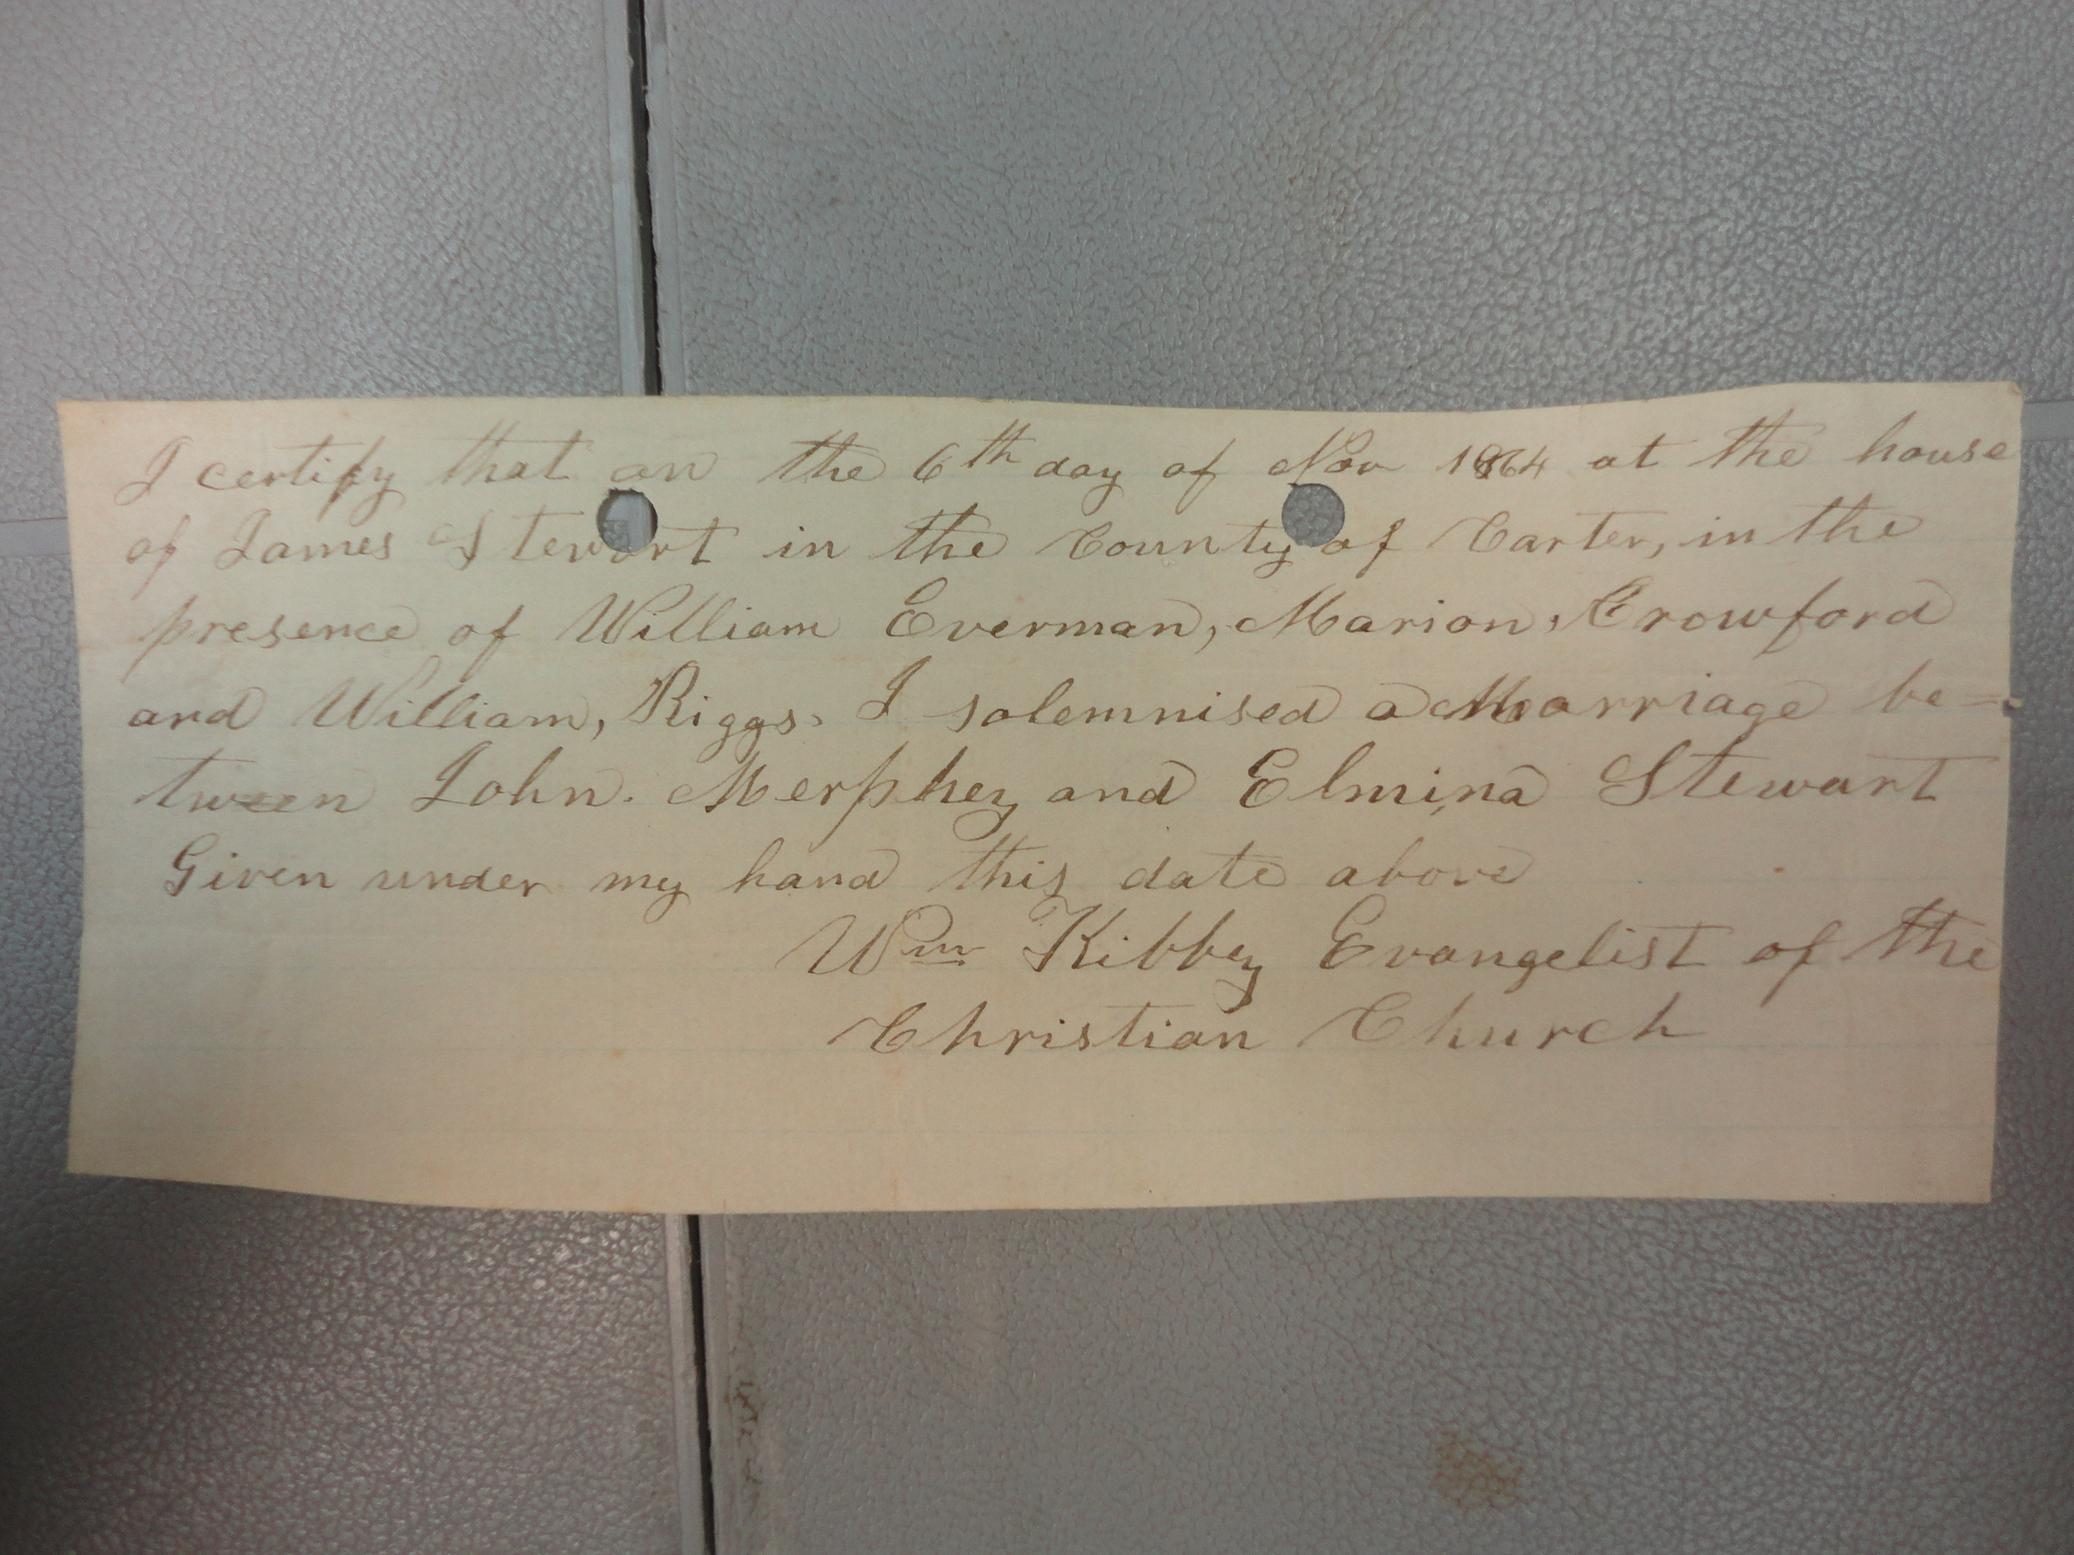 I certify that on the 6th day of Nov 1864 at the house
of James Stewart in the County of Carter, in the
presence of William Everman, Marion, Crowford
and William, Riggs. I solemnised a Marriage be-
tween John. Merphey and Elmina Stewart
Given under my hand this date above
Wm Kibbey Evangelist of the
Christian Church